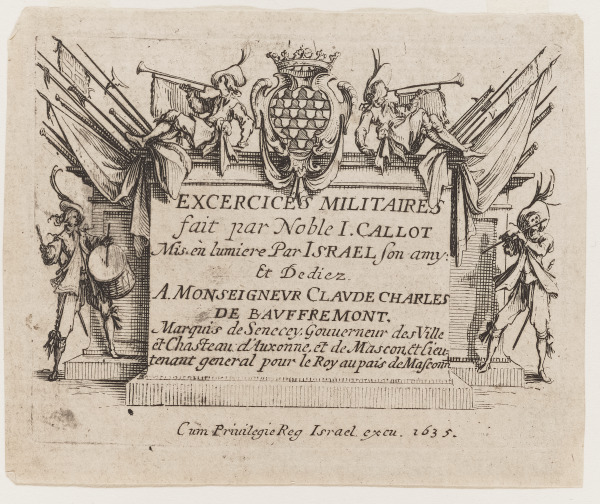 EXCERCICES MILITAIRES
fait par Noble I. CALLOT
Mis en lumiere Par ISRAEL son amy:
Et Dediez
A MONSEIGNEVR CLAVDE CHARLES
DE BAVFFREMONT.
Marquis de Senecey. Gouuerneur des Ville
et Chasteau d'Auxonne, et de Mascon, et Lieu-
tenant general pour le Roy au païs de Masconn
Cum Privilegie Reg Israel. excu. 1635.